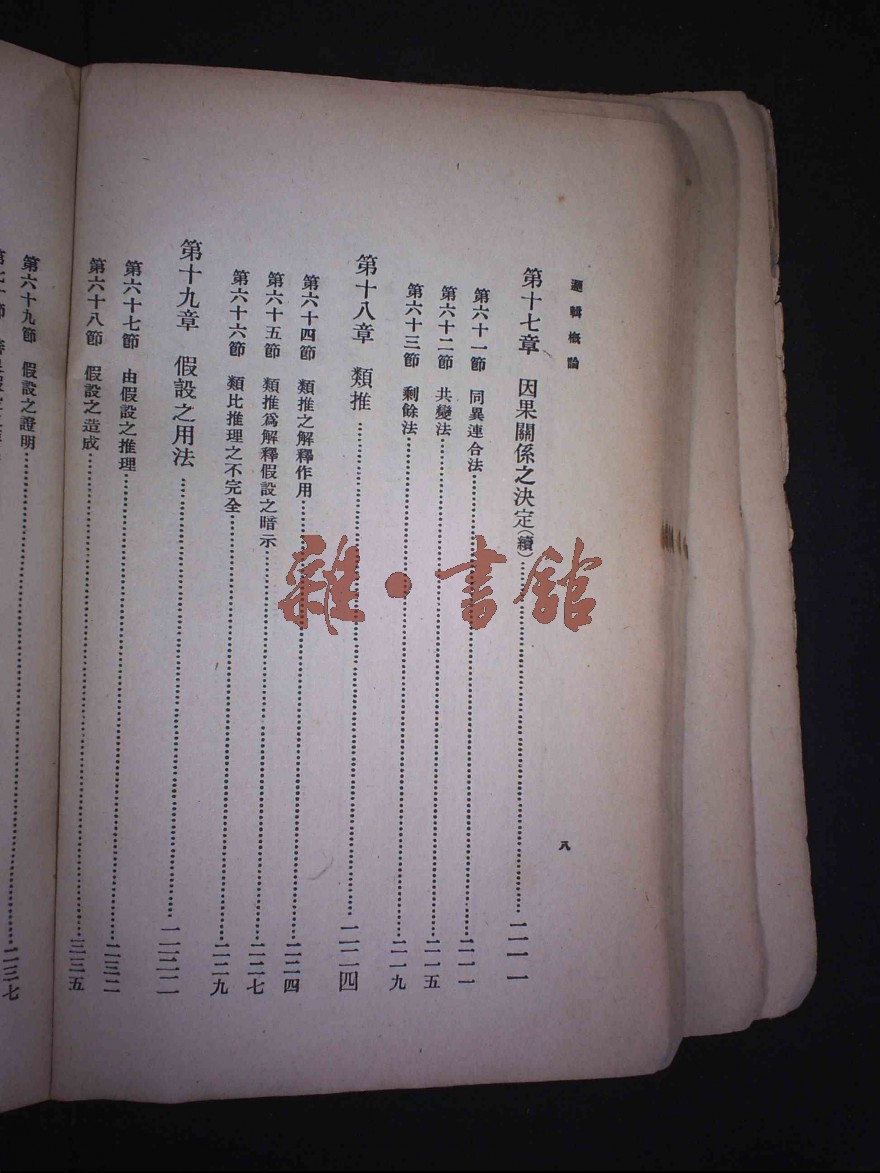 邏輯概論
八
第十七章 因果關係之決定(續)……二一一
第六十一節 同異連合法……二一一
第六十二節 共變法……二一五
第六十三節 剩餘法……二一九
第十八章 類推……二二四
第六十四節 類推之解釋作用……二二四
第六十五節 類推爲解釋假設之暗示……二二七
第六十六節 類比推理之不完全……二二九
第十九章 假設之用法……二三二
第六十七節 由假設之推理……二三二
第六十八節 假設之造成……三三五
第六十九節 假設之證明……二三七
雜·書館